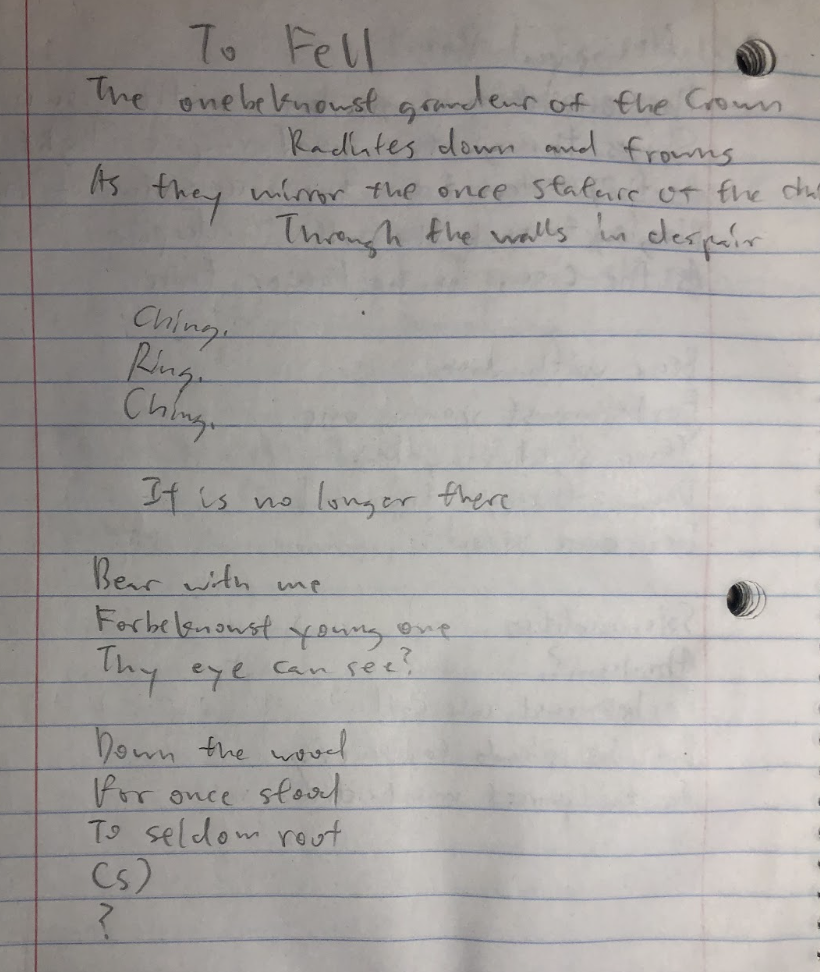 To Fell
The onebeknowst grandeur of the Crown
Radiates down and frowns
As they mirror the once stature of the
Through the walls in despair
Ching.
Ring.
Ching.
It is no longer there
Bear with me
Forbeknowst young one
Thy eye can see?
Down the wood
For once stood
To seldom root
(s)
?